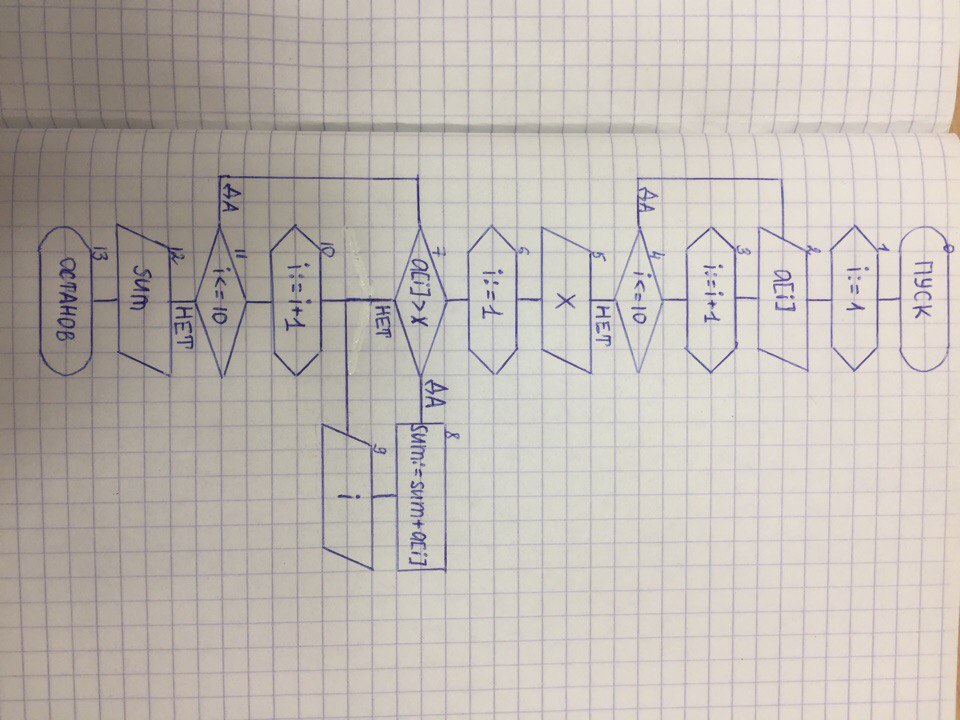 0
ПУСК
1
i:=1
2
a[i]
3
i:=i+1
4
i<=10
ДА
НЕТ
5
X
6
i:=1
7
a[i]>x
ДА
НЕТ
8
sum:=sum+a[i]
9
i
10
i:=i+1
11
i<=10
ДА
НЕТ
12
sum
13
ОСТАНОВ